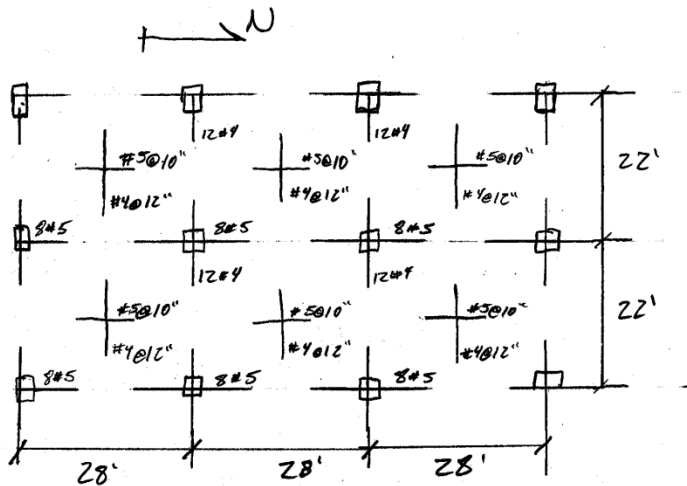 N
12#4 12#4
#5@10" #5@10" #5@10"
#4@12" #4@12" #4@12"
22'
8#5 8#5 8#5
12#4 12#4
#5@10" #5@10" #5@10"
#4@12" #4@12" #4@12"
22'
8#5 8#5 8#5
28' 28' 28'